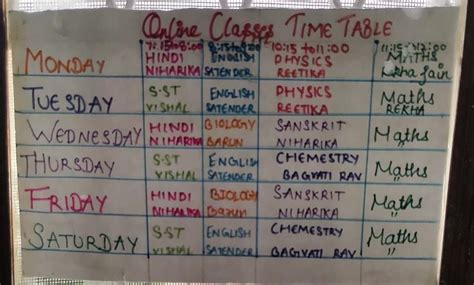 Online Classes TIME TABLE
7:15 to 8:00 8:15 to 9:00 10:15 to 11:00 11:15-12:00
MONDAY HINDI ENGLISH PHYSICS MATHS
NIHARIKA SATENDER REETIKA Rekha Jain
TUESDAY S-ST ENGLISH PHYSICS Maths
VISHAL SATENDER REETIKA REKHA
WEDNESDAY HINDI BIOLOGY SANSKRIT Maths
NIHARIKA BARUN NIHARIKA "
THURSDAY S-ST ENGLISH CHEMESTRY Maths
VISHAL SATENDER BAGVATI RAV "
FRIDAY HINDI BIOLOGY SANSKRIT Maths
NIHARIKA Barun NIHARIKA "
SATURDAY S-ST ENGLISH CHEMESTRY Maths
VISHAL SATENDER BAGVATI RAV "